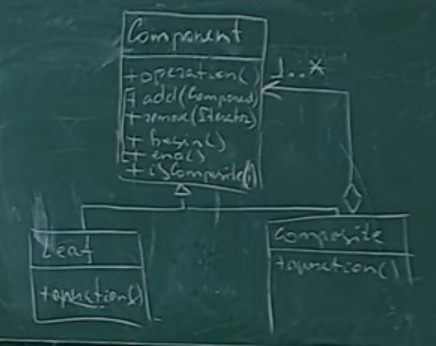 Component
+operation()
+add(Component)
+remove(Iterator)
+begin()
+end()
+isComposite()
1..*
Leaf
+operation()
Composite
+operation()